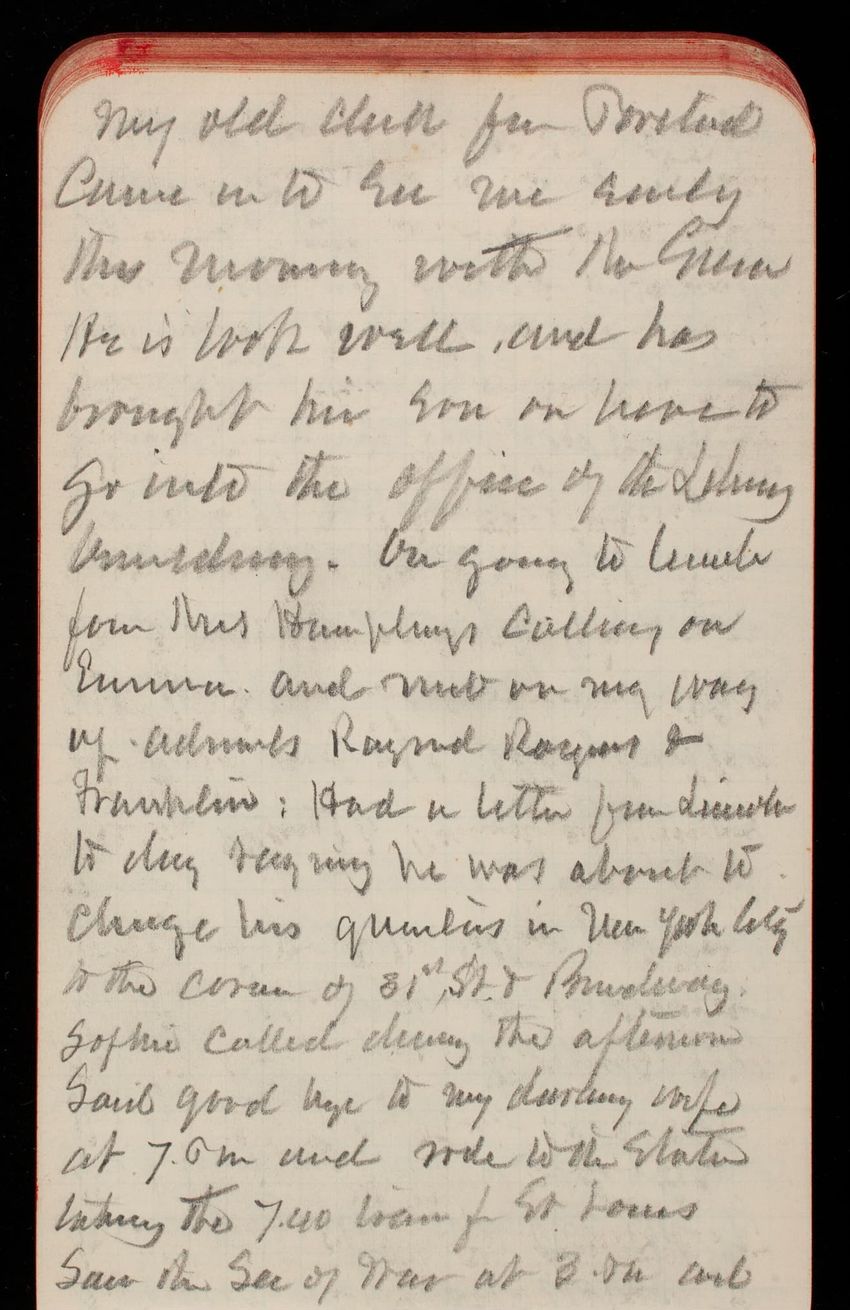 My old clerk from Portland
Came in to see me early
this morning with the Green
He is look well, and has
brought his son on here to
go into the office of the Library
building. On going to lunch
found Mrs Humphreys calling on
Emma. and met on my way
up Admirals Raymd Rogers &
Franklin: Had a letter from Lincoln
to day saying he was about to
change his quarters in New York City
to the corner of 31st St. & Broadway.
Sophie called during the afternoon
Said good bye to my darling wife
at 7. P m and rode to the Station
taking the 7.40 train for St Louis
Saw the Sec of War at 3. and